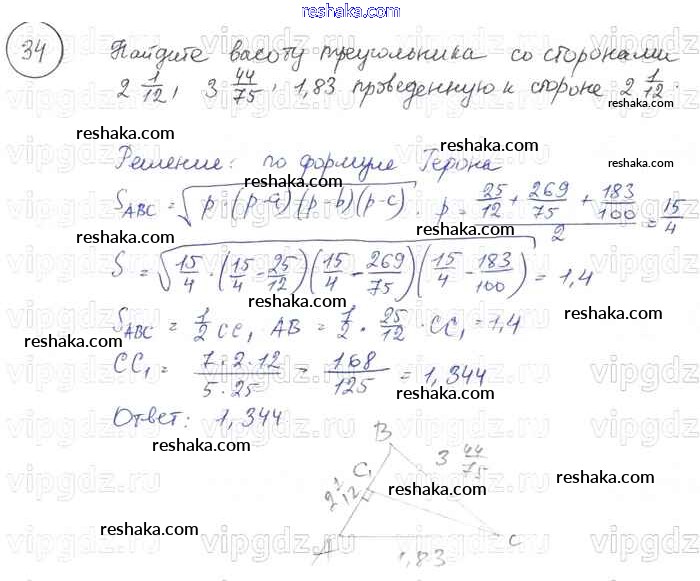 reshaka.com
34 Найдите высоту треугольника со сторонами
2 1/12, 3 44/75, 1,83 проведенную к стороне 2 1/12.
reshaka.com
reshaka.com
Решение: по формуле Герона
reshaka.com
S_ABC = √(p·(p-a)(p-b)(p-c)). p = (25/12 + 269/75 + 183/100)/2 = 15/4
reshaka.com
S = √(15/4·(15/4 - 25/12)(15/4 - 269/75)(15/4 - 183/100)) = 1,4
reshaka.com
S_ABC = 1/2 CC₁ AB = 1/2 · 25/12 · CC₁ = 1,4
reshaka.com
CC₁ = 7·2·12/5·25 - 168/125 = 1,344
reshaka.com
Ответ: 1,344
reshaka.com
B
3 44/75
C₁
2 1/12
reshaka.com
reshaka.com
A
C
1,83
reshaka.com
vipgdz.ru